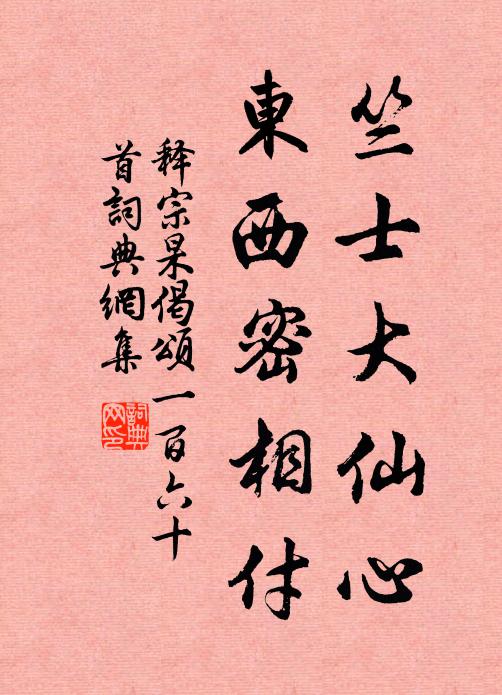 竺士大仙心
東西密相付
释宗杲偈頌一百六十
首詞典網集
詞典
网印